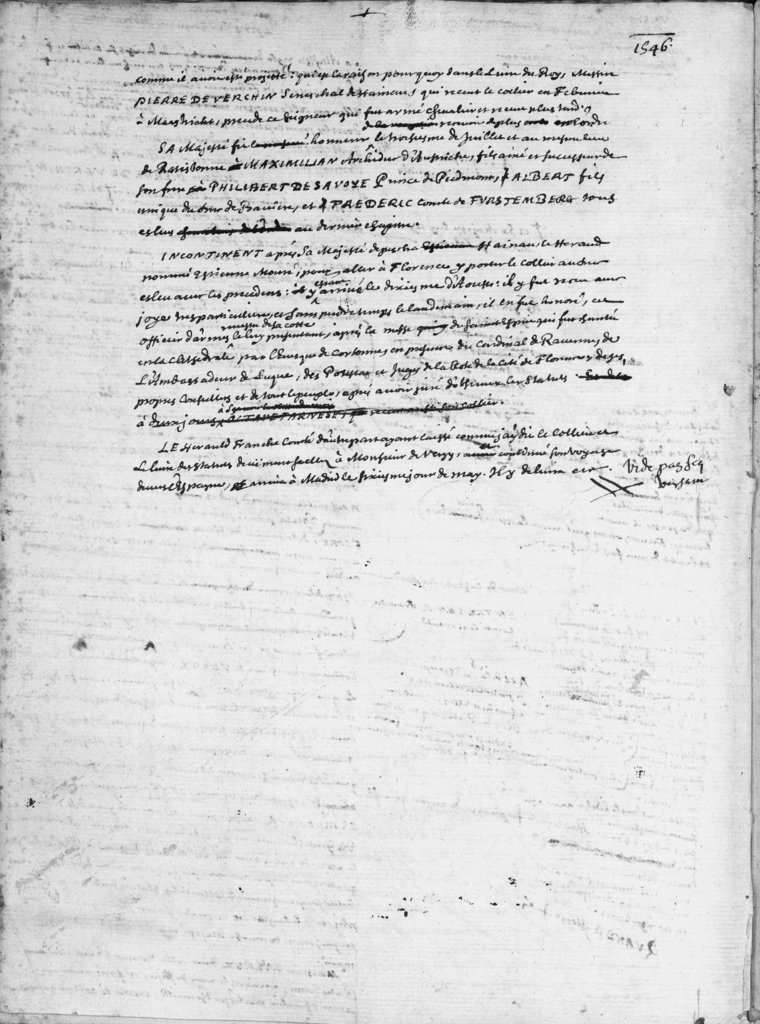 1546.
comme il avoit esté projetté: qui est la raison pourquoy dans le Livre du Roy, Messire
PIERRE DE VERCHIN Seneschal de Hainaut, qui receut le collier en Febvrier
à Maestricht, precede ce Seigneur qui fut armé chevalier et receut plus tard.
SA Majesté fit honneur le troisesme de Juillet et au mesme lieu
de Ratisbonne à MAXIMILIAN Archiduc d'Austriche, fils aisné et successeur de
son frere à PHILIBERT DE SAVOYE Prince de Piedmont, à ALBERT fils
unique du Duc de Baviere, et à FREDERIC Comte de FURSTEMBERG tous
esleus au dernier chapitre.
INCONTINENT apres Sa Majesté depescha Hainaut le Heraud
nommé Estienne Mouré, pour aller à Florence y porter le collier au Duc
esleu avec les precedens: il y arrivé le dixiesme d'Aoust: il y fut receu avec
joye tres particuliere, et sans perdre temps le landemain, il en fut honoré, cet
officier d'armes revestu de la cotte le luy presentant, apres la messe du Saint Esprit qui fut chantée
en la Cathedrale par l'Evesque de Cortonne, en presence du Cardinal de Ravenne, de
l'Ambassadeur de Luque, des Potestat et Juges de la Rote de la Cité de Florence, de ses
propres Conseillers et de tout le peuple, apres avoir juré d'observer les Statuts.
à deux jours OCTAVE FARNESE, receut aussi son collier.
LE Herauld Franche Comté d'autre part ayant laissé comme j'ay dit le Collier et
le livre des statuts à Monsieur de Vergy, continué son voyage
devers l'Espagne, arriva à Madrid le sixiesme jour de may. Il y delivra etc. Vide pag Seq
versam